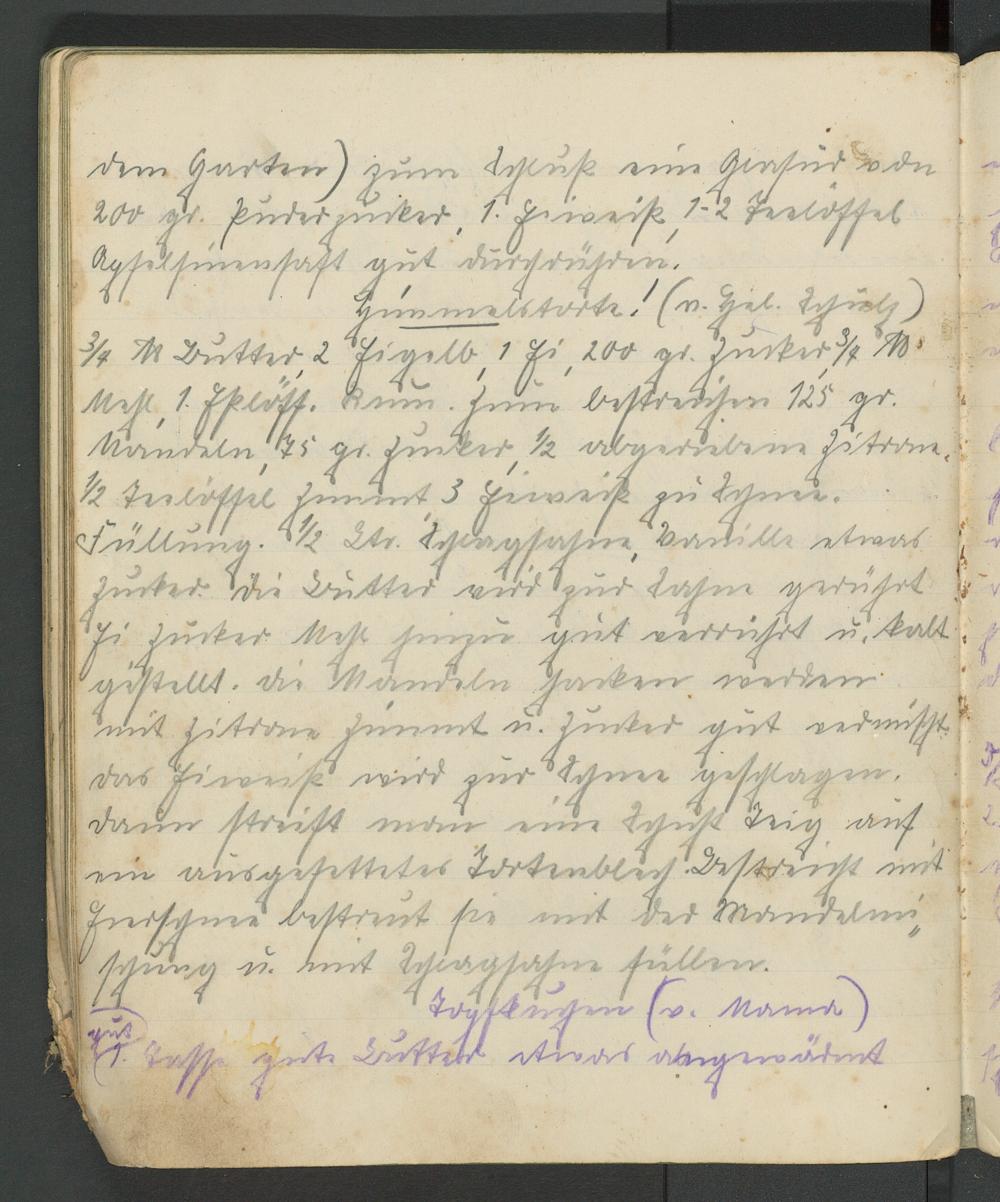 dem Garten) zum Schluß eine Glasur von
200 gr. Puderzucker, 1. Eiweiß, 1-2 Teelöffel
Apfelsinensaft gut durchrühren.
Himmelstorte! (v. Hel. Schulz)
3/4 ℔ Butter, 2 Eigelb, 1 Ei, 200 gr. Zucker, 3/4 ℔
Mehl, 1. Eßlöff. Rum. Zum bestreichen 125 gr.
Mandeln, 75 gr. Zucker, 1/2 abgeriebene Zitrone,
1/2 Teelöffel Zimmt, 3 Eiweiß zu Schnee.
Füllung. 1/2 Ltr. Schlagsahne, Vanille etwas
Zucker. Die Butter wird zur Sahne gerührt
Ei Zucker Mehl hinzu gut verrührt u. kalt
gestellt. Die Mandeln hacken werden
mit Zitrone Zimmt u. Zucker gut vermischt.
das Eiweiß wird zur Schnee geschlagen.
dann streift man eine Schicht Teig auf
ein ausgefettetes Tortenblech. Bestreicht mit
Eierschnee bestreut sie mit der Mandelmi„
schung u. mit Schlagsahne füllen.
Topfkuchen (v. Mama)
gut
1. Tasse gute Butter etwas angewärmt